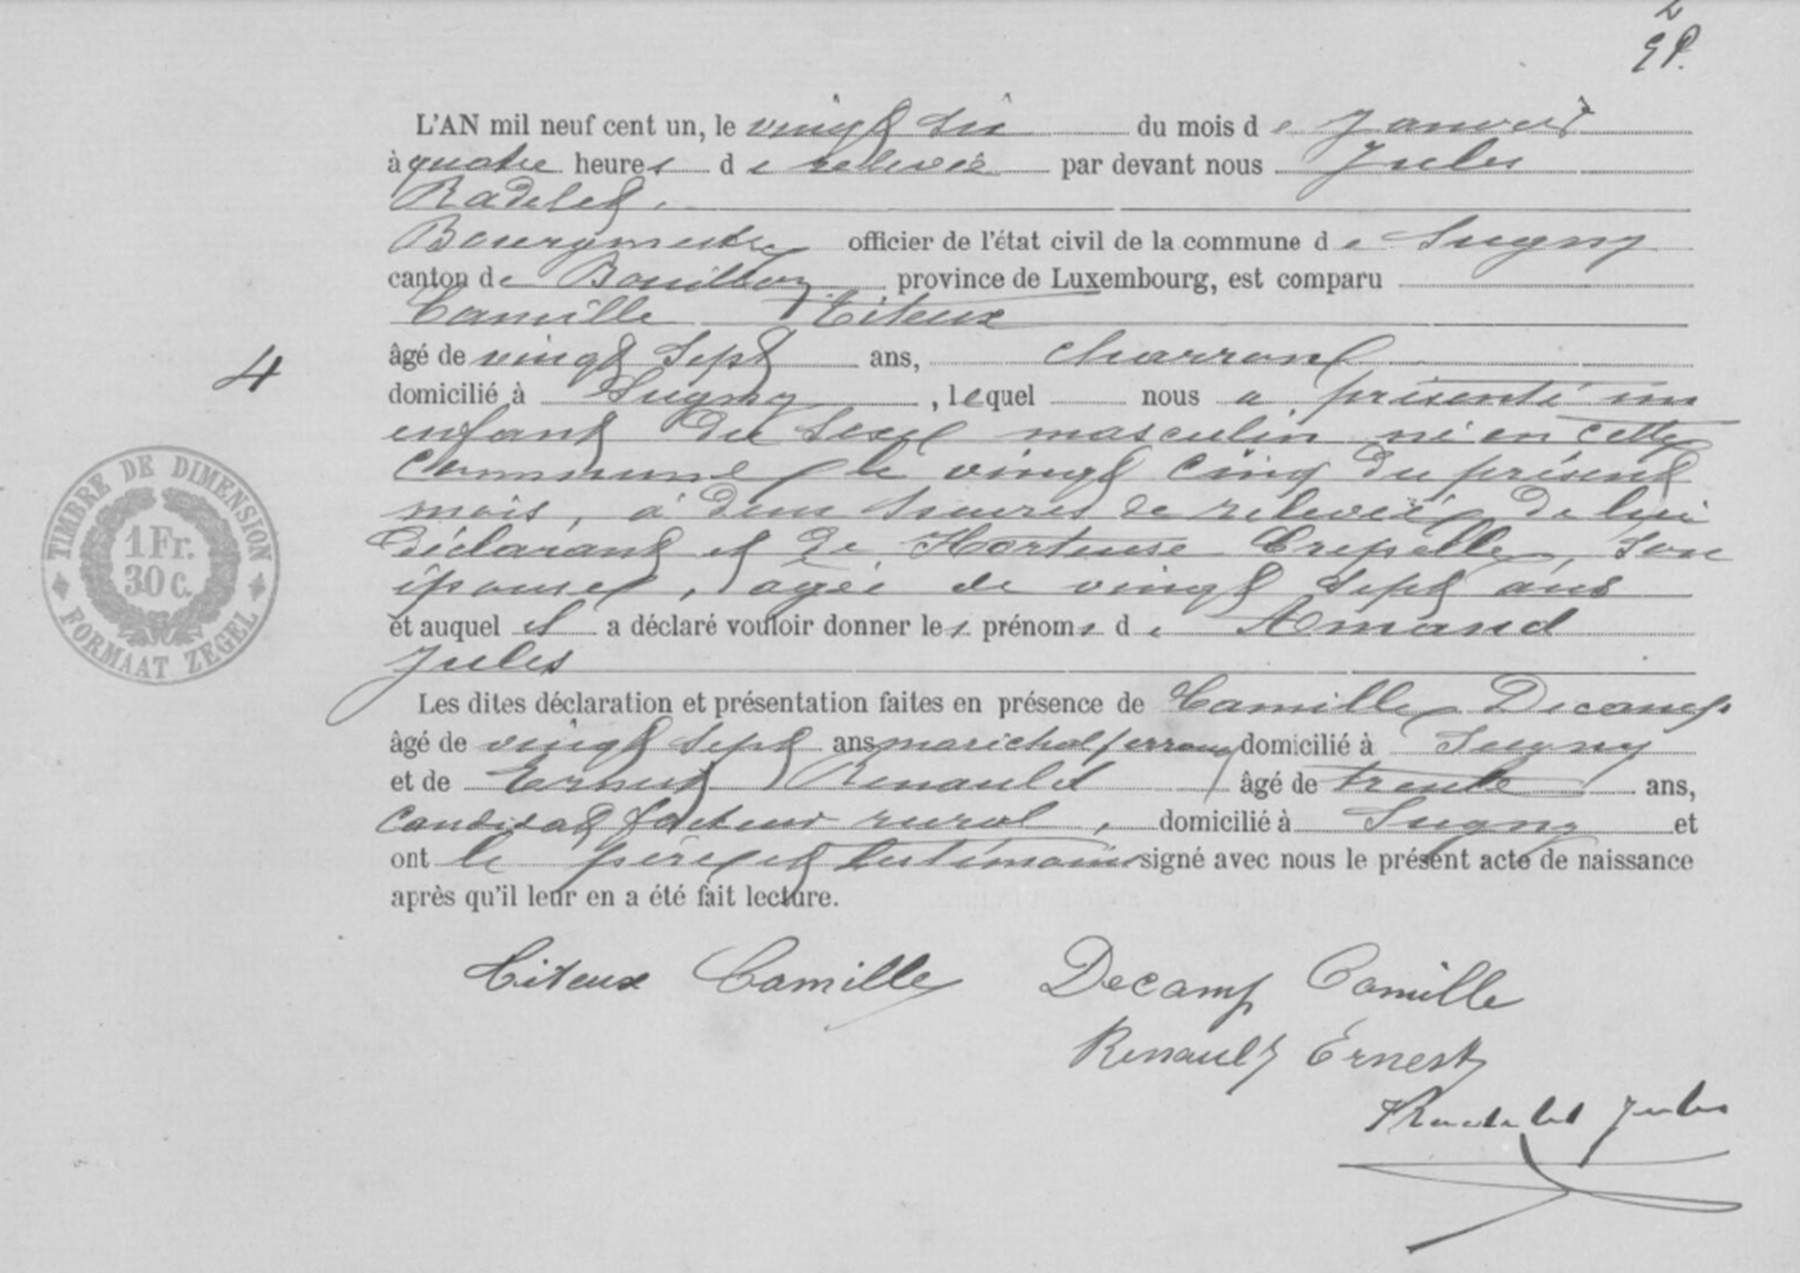 2
L'AN mil neuf cent un, le vingt six du mois de Janvier
à quatre heures de relevée par devant nous Jules
Radelet,
Bourgmestre officier de l'état civil de la commune de Sugny
canton de Bouillon, province de Luxembourg, est comparu
Camille Titeux
âgé de vingt sept ans, charron
4
domicilié à Sugny, lequel nous a présenté un
enfant du sexe masculin né en cette
commune le vingt cinq du présent
mois, à deux heures de relevée de lui
déclarant et de Hortense Crepelle, son
épouse, agée de vingt sept ans
et auquel il a déclaré vouloir donner les prénoms de Amand
Jules
Les dites déclaration et présentation faites en présence de Camille Decamp
âgé de vingt sept ans marichal ferrant domicilié à Sugny
et de Ernest Renauld âgé de trente ans,
candidat facteur rural, domicilié à Sugny et
ont le père et les témoins signé avec nous le présent acte de naissance
après qu'il leur en a été fait lecture.
TIMBRE DE DIMENSION
1 Fr.
30 c.
FORMAAT ZEGEL
Titeux Camille Decamp Camille
Renault Ernest
Radelet Jules